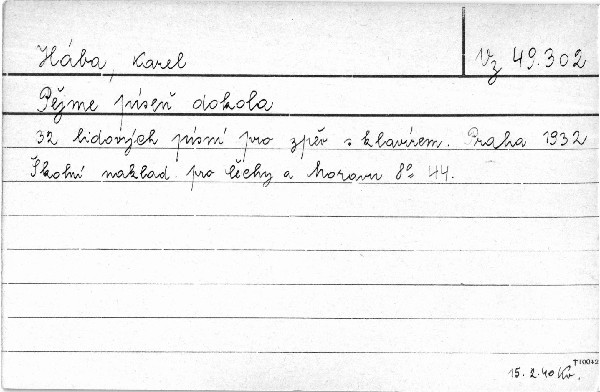 Hába, Karel
Vz 49.302
Pějme píseň dokola
32 lidových písní pro zpěv s klavírem. Praha 1932
Školní naklad. pro Čechy a Moravu 8° 44.
T10042
15.2.40 Kv.